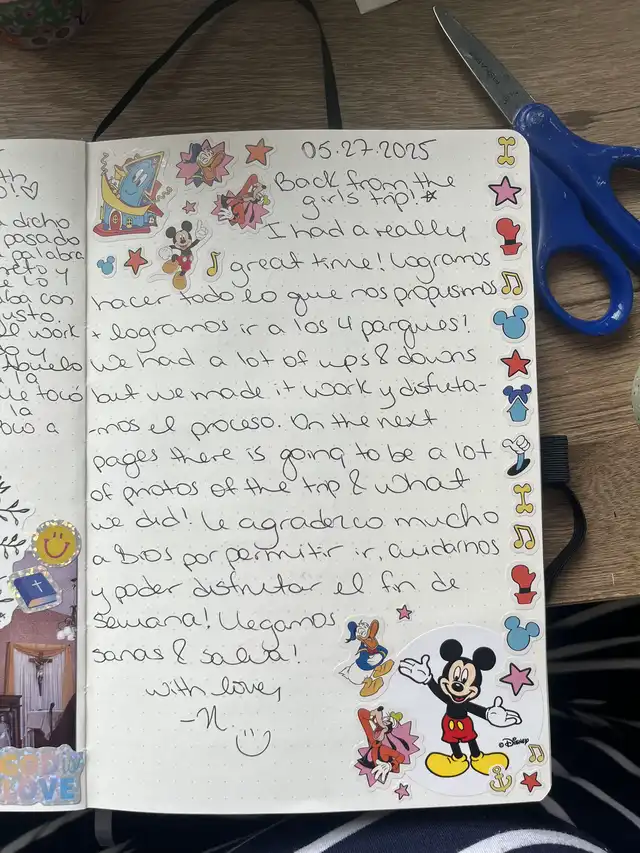 th
a dicho
pasado
palabra
reto y
usto
work
y
abuelo
la
tocó
la
ocó a
LOVE
05.27.2025
Back from the
girls trip!
I had a really
great time! Logramos
hacer todo lo que nos propusimos
+ logramos ir a los 4 parques!
We had a lot of ups & downs
but we made it work y disfruta-
-mos el proceso. On the next
pages there is going to be a lot
of photos of the trip & what
we did! Le agradezco mucho
a Dios por permitir ir, cuidarnos
y poder disfrutar el fin de
semana! Llegamos
sanas & salva!
with love,
-N
© Disney